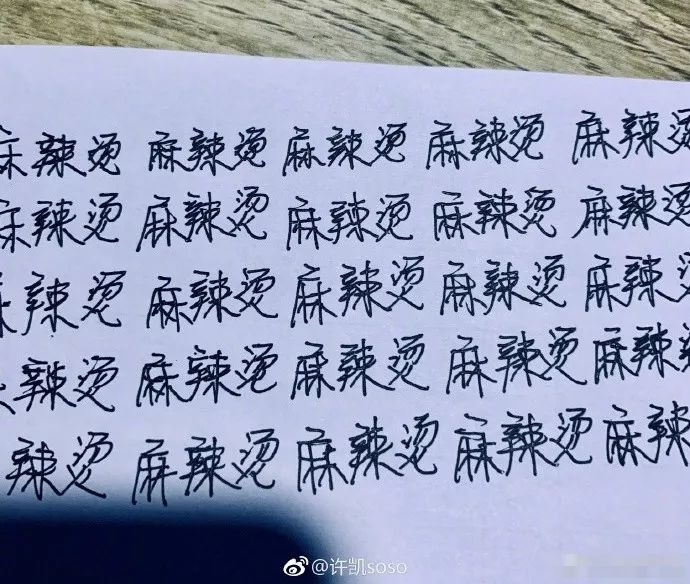 麻辣烫 麻辣烫 麻辣烫 麻辣烫 麻辣烫
麻辣烫 麻辣烫 麻辣烫 麻辣烫 麻辣烫
麻辣烫 麻辣烫 麻辣烫 麻辣烫 麻辣烫
辣烫 麻辣烫 麻辣烫 麻辣烫 麻辣
辣烫 麻辣烫 麻辣烫 麻辣烫 麻辣
@许凯soso